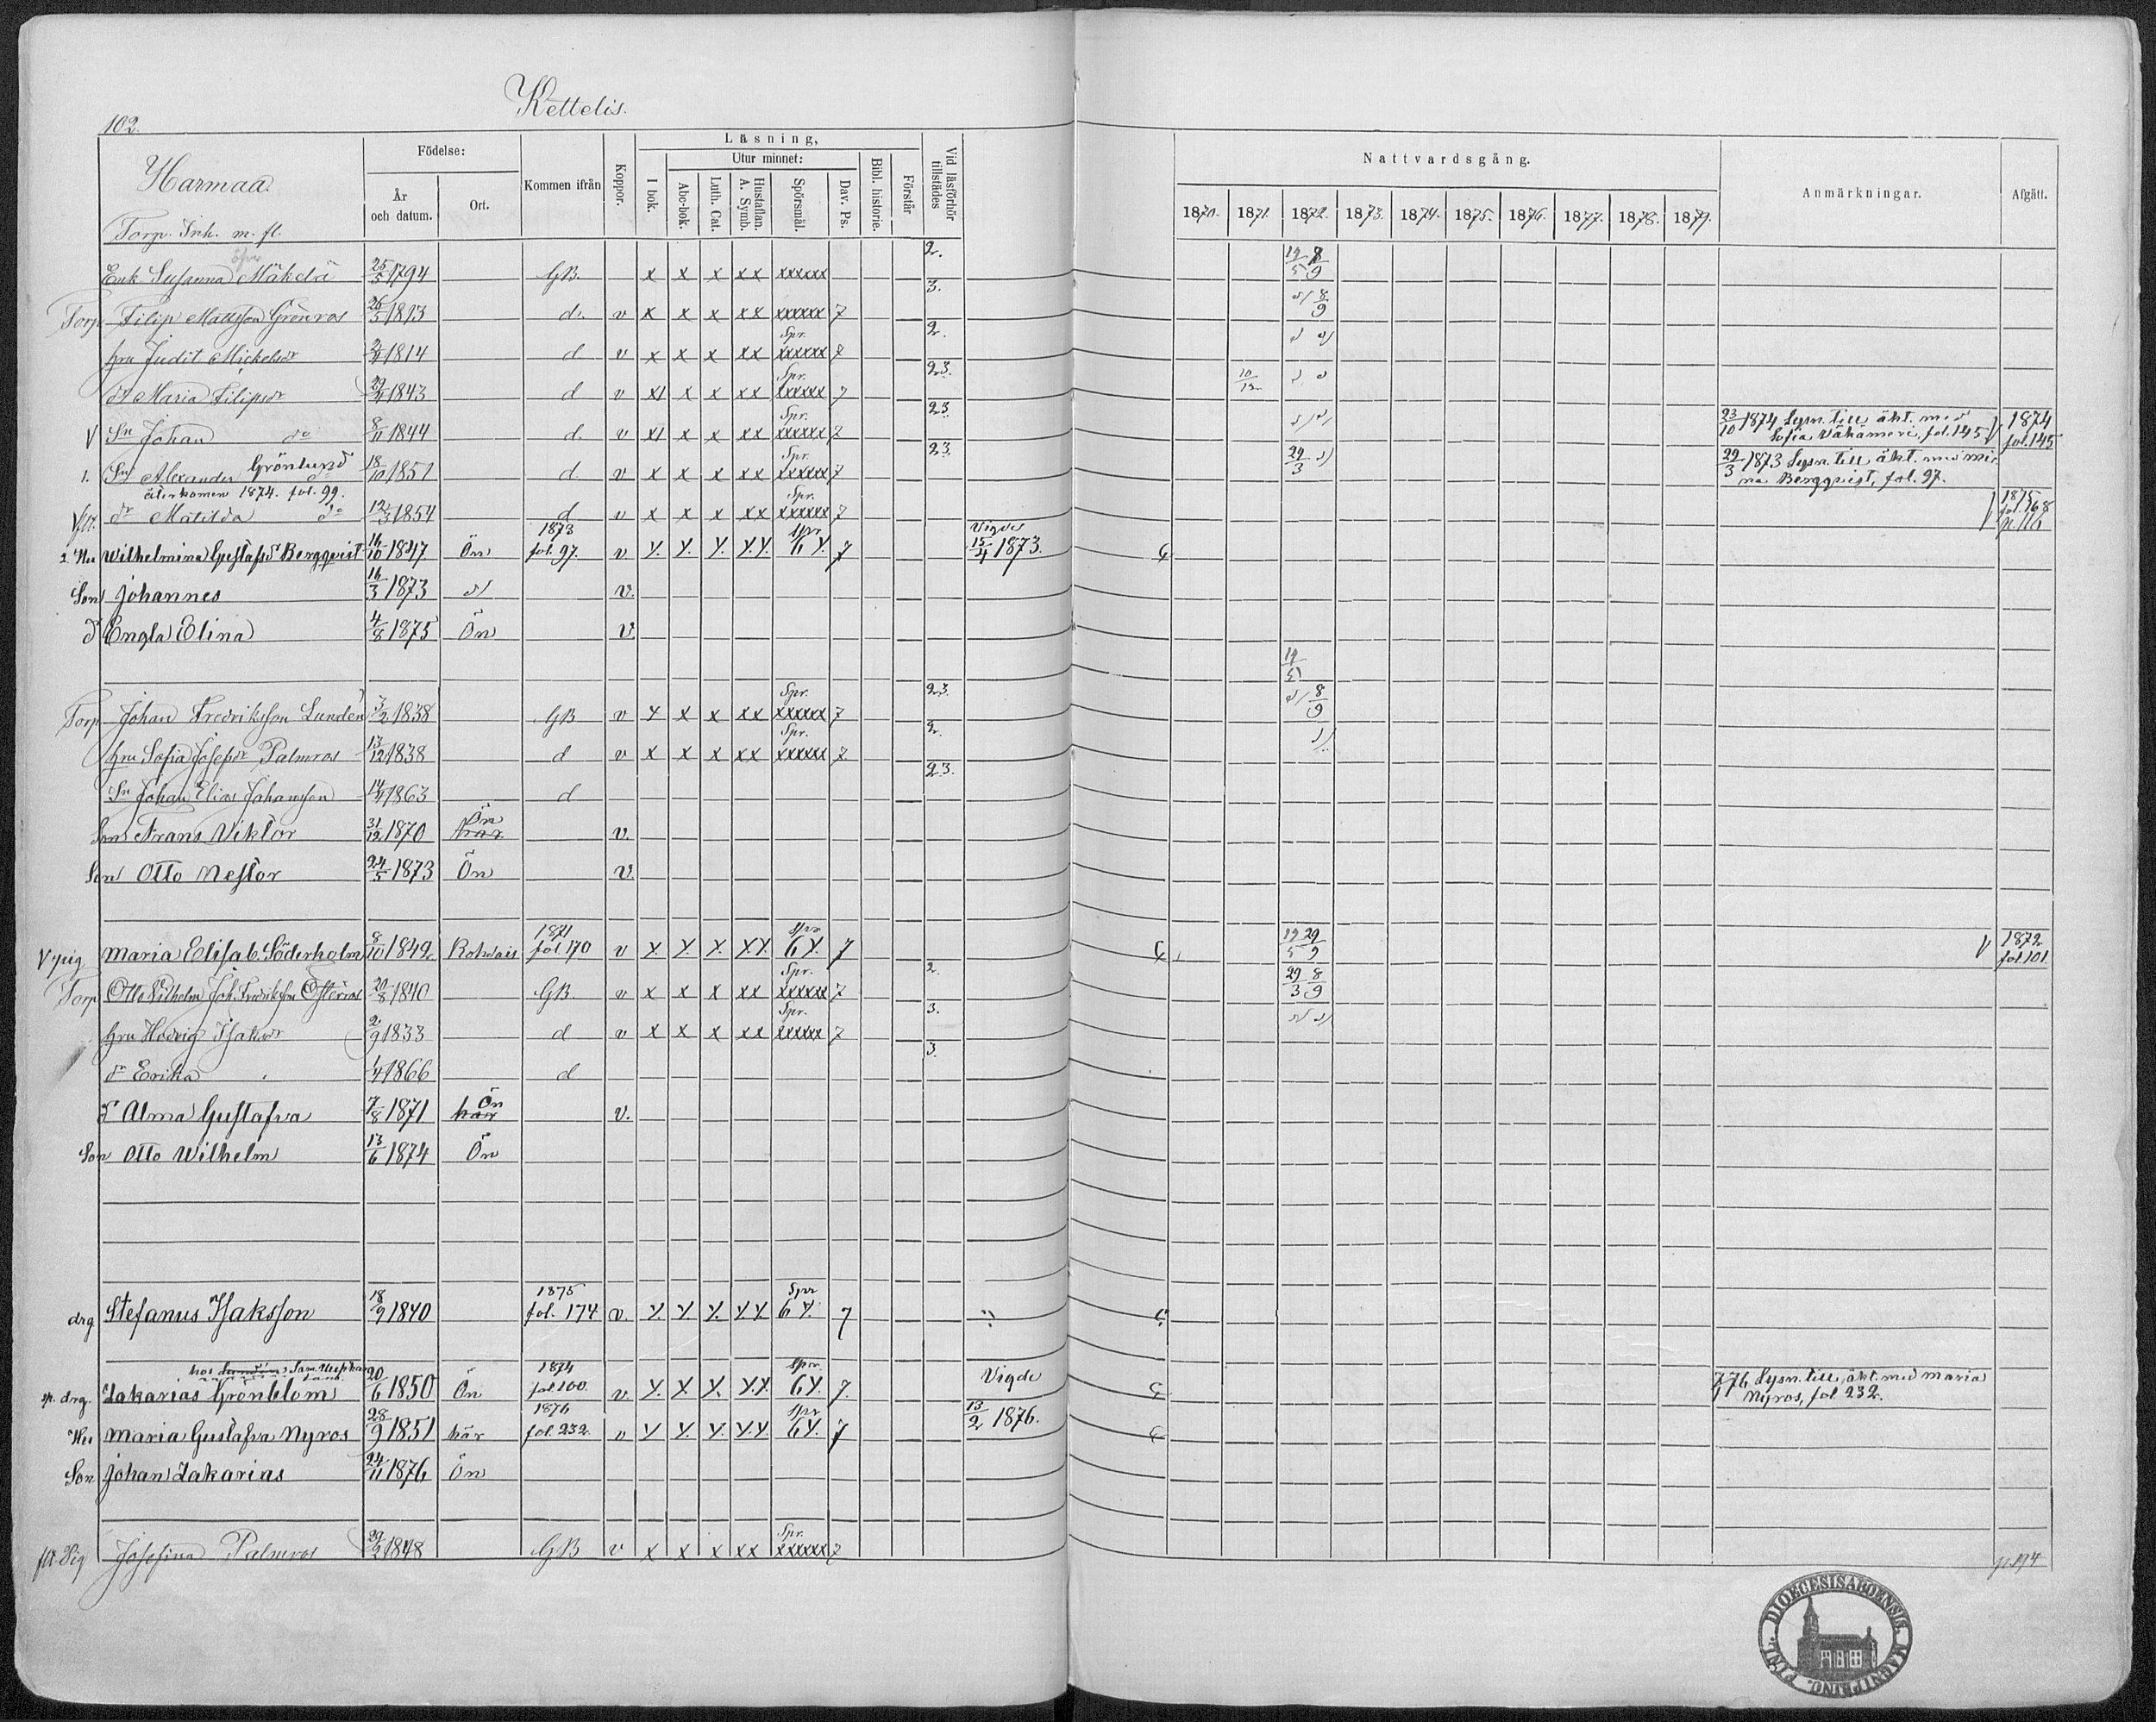 102.
Kettelis.
Harmaa.
Torp. Inh. m. fl.
Födelse:
År och datum.
Ort.
Kommen ifrån
Koppor.
Läsning,
I bok.
Utur minnet:
Abc-bok.
Luth. Cat.
Hustaflan. A. Symb.
Spörsmål.
Dav. Ps.
Bibl. historie.
Förstår
Vid läsförhör tillstädes
Nattvardsgång.
1870. 1871. 1872. 1873. 1874. 1875. 1876. 1877. 1878. 1879.
Anmärkningar.
Afgått.
Enk. Susanna Mäkelä 25/5 1794 GB. x x x xx xxxxxx 2. 19/5 8/9
Torp Filip Mattsson Grönros 26/5 1813 d. v x x x xx xxxxxx 7 3. 8/9
hru Judit Mickelsdr 1814 d v x x x xx Spr. xxxxxx 7 2.
dr Maria Filipsdr 29/4 1843 d v x x x xx Spr. xxxxxx 7 23. 10/12
V Sn Johan do 8/11 1844 d. v x x x xx Spr. xxxxxx 7 23. 23/10 1874 Lysn. till äkt. med Sofia Vähämeri, fol. 145 V 1874 fol. 145
1. Sn Alexander Grönlund 18/10 1851 d v x x x xx Spr. xxxxxx 7 23. 29/3 29/3 1873 Lysn. till äkt. med Mina Bergqvist, fol. 97.
återkomen 1874. fol. 99.
dr Matilda do 12/3 1854 d v x x x xx Spr. xxxxxx 7 V 1875 fol. 168
2 Hu Wilhelmina Gustafsdr Bergqvist 16/10 1847 Ön 1873 fol. 97. v Y. Y. Y. Y.Y. Spr 6 Y. 7 Vigdes 15/4 1873.
Son Johannes 16/3 1873 d v.
d Engla Elina 4/8 1875 Ön v.
19/5
Torp Johan Fredriksson Lundén 3/2 1838 GB v x x x xx Spr. xxxxxx 7 23. 8/9
hru Sofia Josefsdr Palmros 13/12 1838 d v x x x xx Spr. xxxxxx 7 2.
Sn Johan Elias Johansson 14/4 1863 d 23.
Son Frans Viktor 31/12 1870 Ön här v.
Son Otto Nestor 24/5 1873 Ön v.
V pig Maria Elisab. Söderholm 8/10 1849 1871 fol 170 v Y. Y. Y. Y.Y. Spr 6 Y. 7 19/5 29/9 V 1872 fol 101
Torp Otto Vilhelm Joh. Fredriksson Österros 20/8 1840 GB v x x x xx Spr. xxxxxx 7 2. 29/3 8/9
hru Hedvig Isaksdr 2/9 1833 d v x x x xx Spr. xxxxxx 7 3.
dr Erika 1/4 1866 d 3.
d Alma Gustafva 7/8 1871 Ön här v.
Son Otto Wilhelm 13/6 1874 Ön
drg Stefanus Isaksson 18/9 1840 1875 fol. 174 v. Y. Y. Y. Y.Y. Spr 6 Y. 7
drg. Zakarias Grönblom 20/6 1850 Ön 1874 fol 100 v. Y. Y. Y. Y.Y. Spr. 6 Y. 7 Vigde 76 Lysn. till äkt. med Maria Nyros, fol. 232.
Hu Maria Gustafva Nyros 28/9 1851 här 1876 fol. 232. v Y Y. Y. Y.Y Spr 6 Y. 7 13/2 1876.
Son Johan Zakarias 24/11 1876 Ön
Pig Josefina Palmros 29/2 1848 GB v x x x xx Spr. xxxxxx 7 p. 194
FINL. DIOECESIS ABOENSIS. MAGNI PRINC.